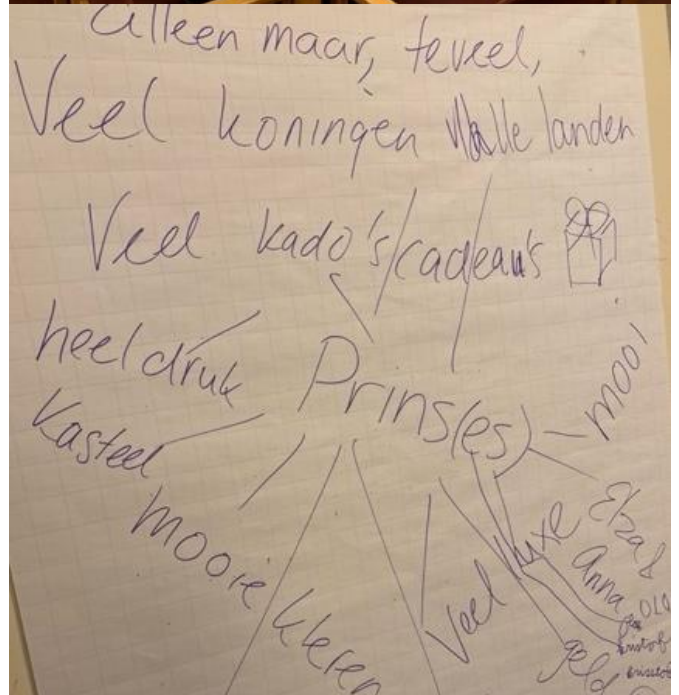 alleen maar, teveel,
Veel koningen alle landen
Veel kado's/cadeau's
heel druk
Prins(es)
mooi
Kasteel
mooie kleren
Veel luxe
Elza &
Anna
geld